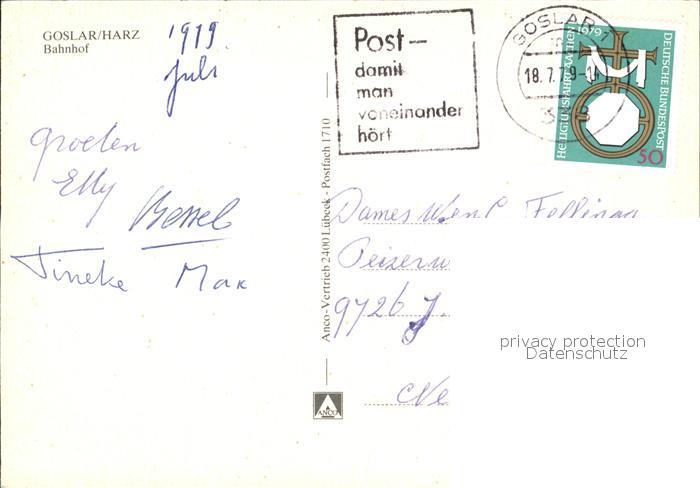 GOSLAR/HARZ
Bahnhof
1979.
Juli
groeten
Elly
Bessel
Tineke Max
Anco-Vertrieb 2400 Lübeck - Postfach 1710
ANCO
Post-
damit
man
voneinander
hört
GOSLAR 1
18.7.79-14
HEILIGTUMSFAHRT AACHEN 1979
DEUTSCHE BUNDESPOST
50
Dames
9726 J.
Ne
privacy protection
Datenschutz